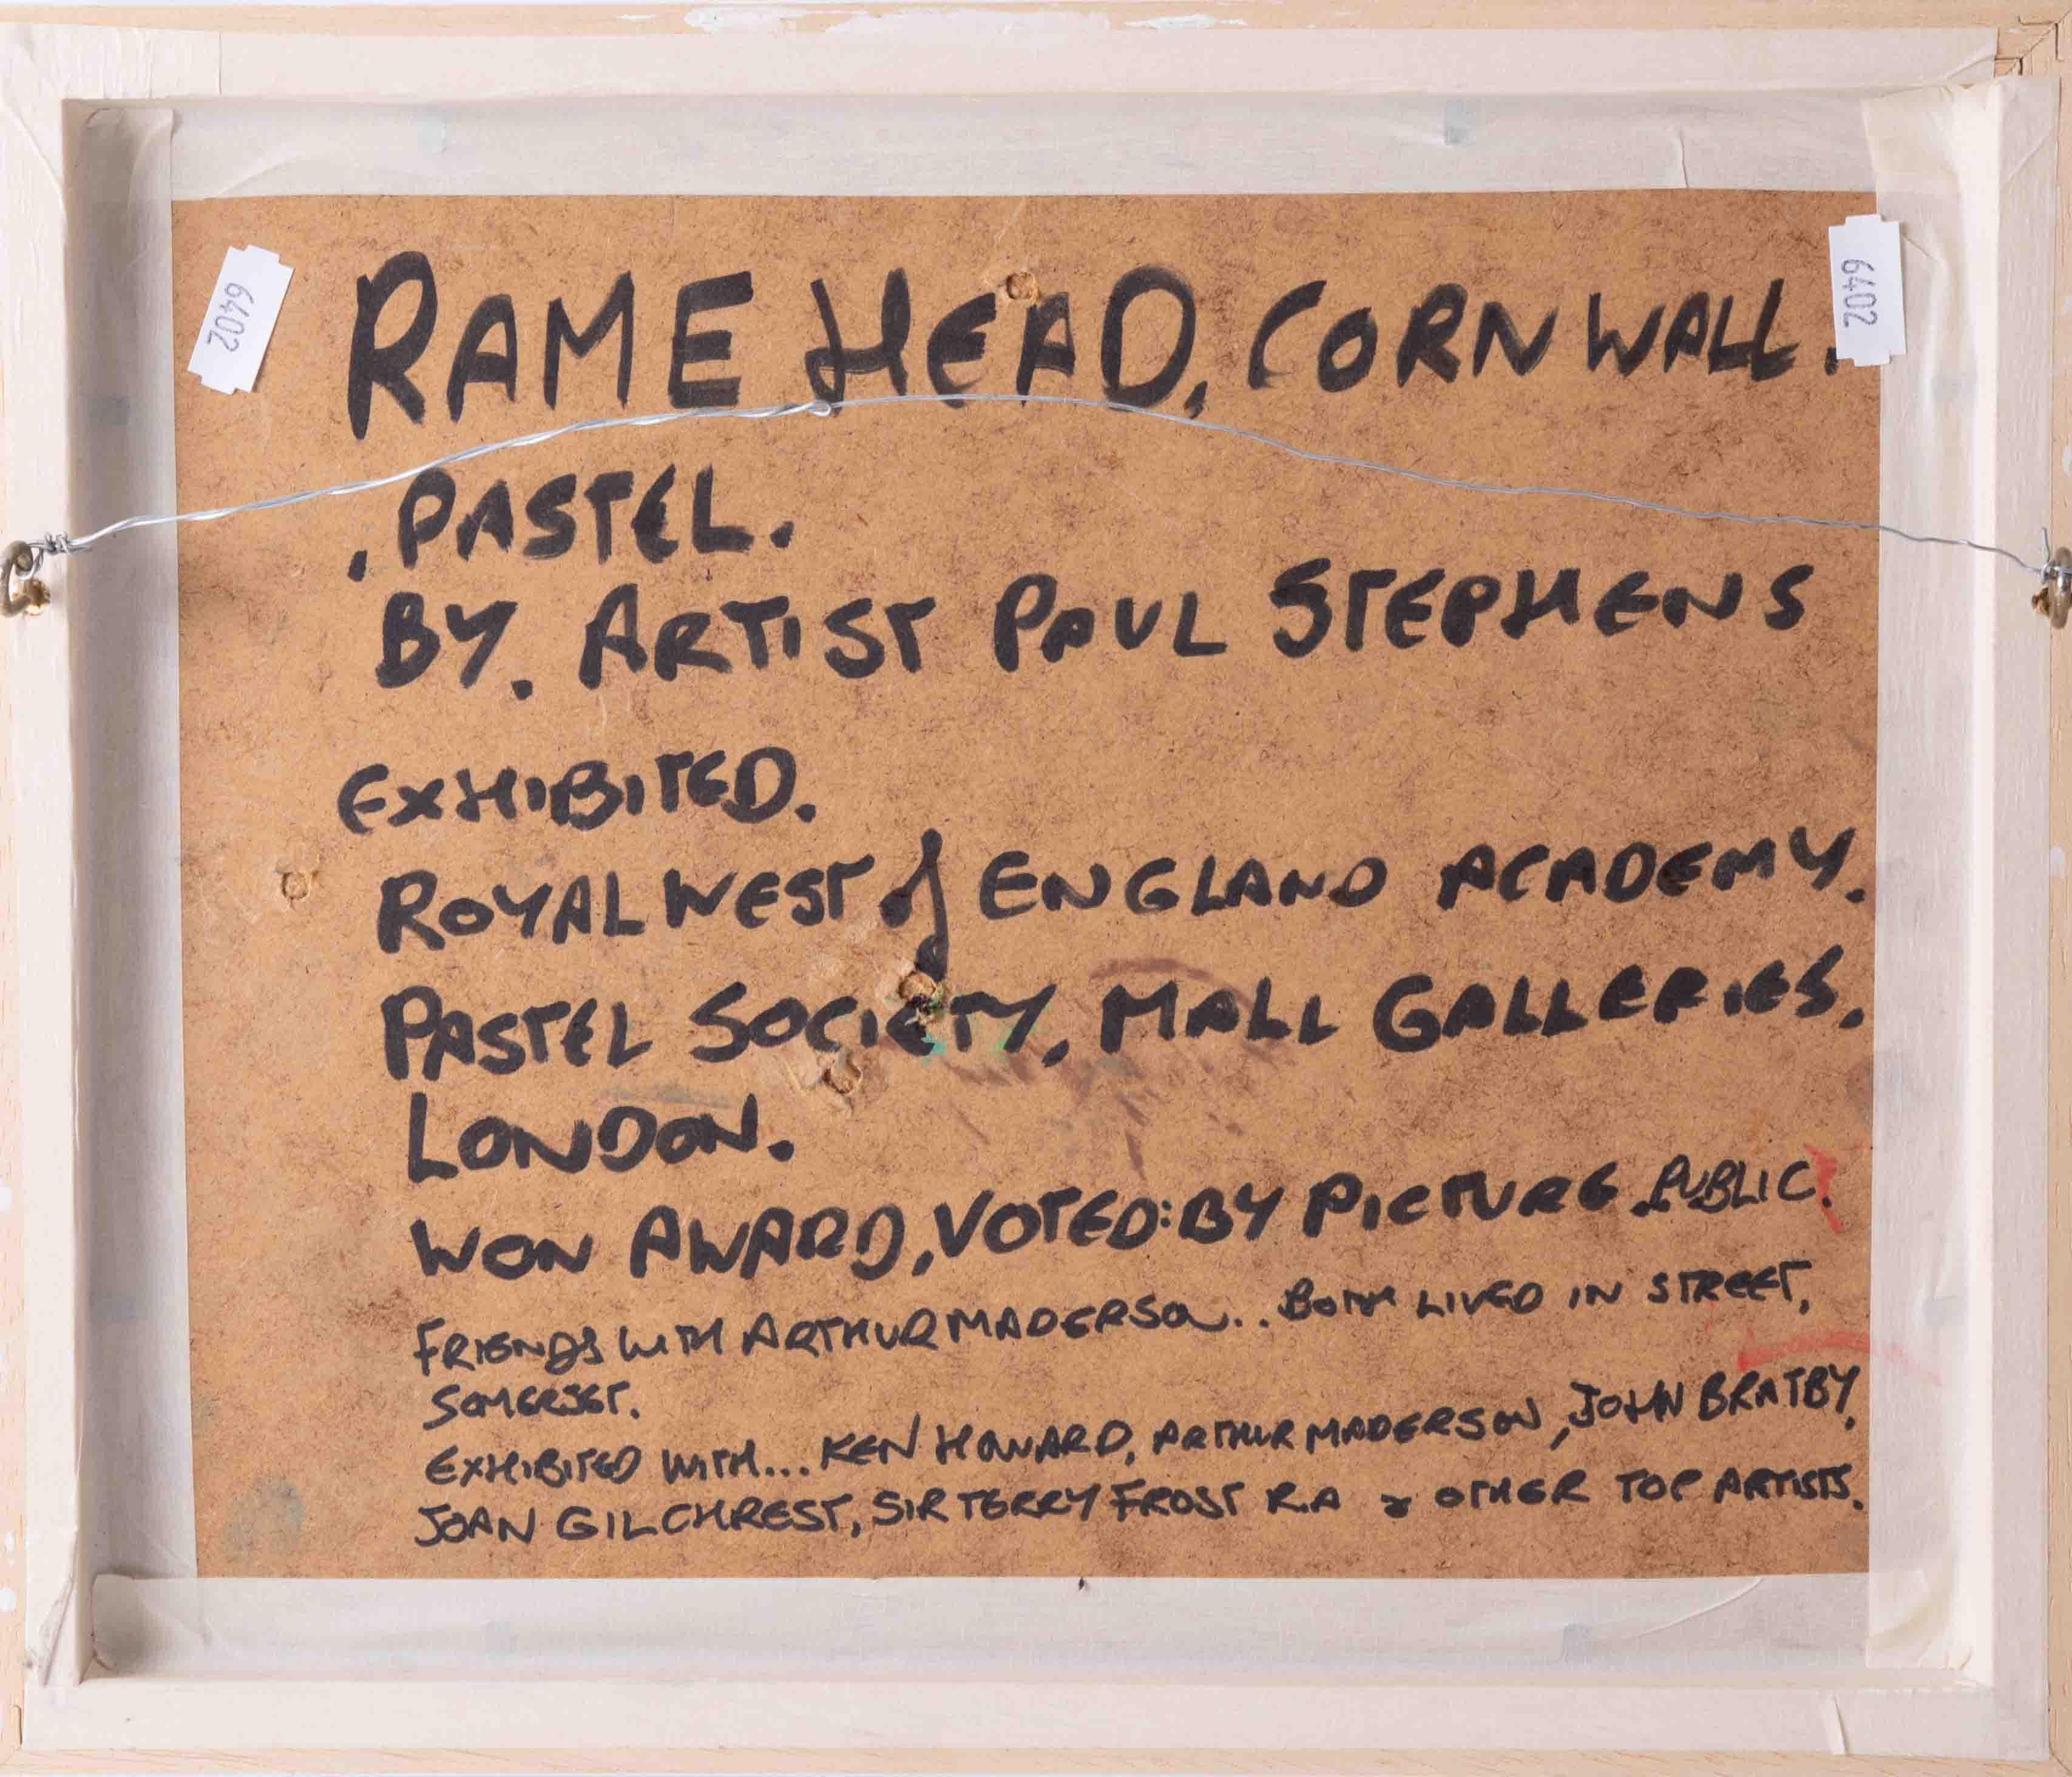 6402
6402
RAME HEAD, CORNWALL.
. PASTEL.
BY. ARTIST PAUL STEPHENS
EXHIBITED.
ROYAL WEST of ENGLAND ACADEMY.
PASTEL SOCIETY. MALL GALLERIES.
LONDON.
WON AWARD, VOTED: BY PICTURE PUBLIC.
FRIENDS WITH ARTHUR MADERSON.. BOTH LIVED IN STREET,
SOMERSET.
EXHIBITED WITH... KEN HOWARD, ARTHUR MADERSON, JOHN BRATBY.
JOAN GILCHREST, SIR TERRY FROST R.A & OTHER TOP ARTISTS.